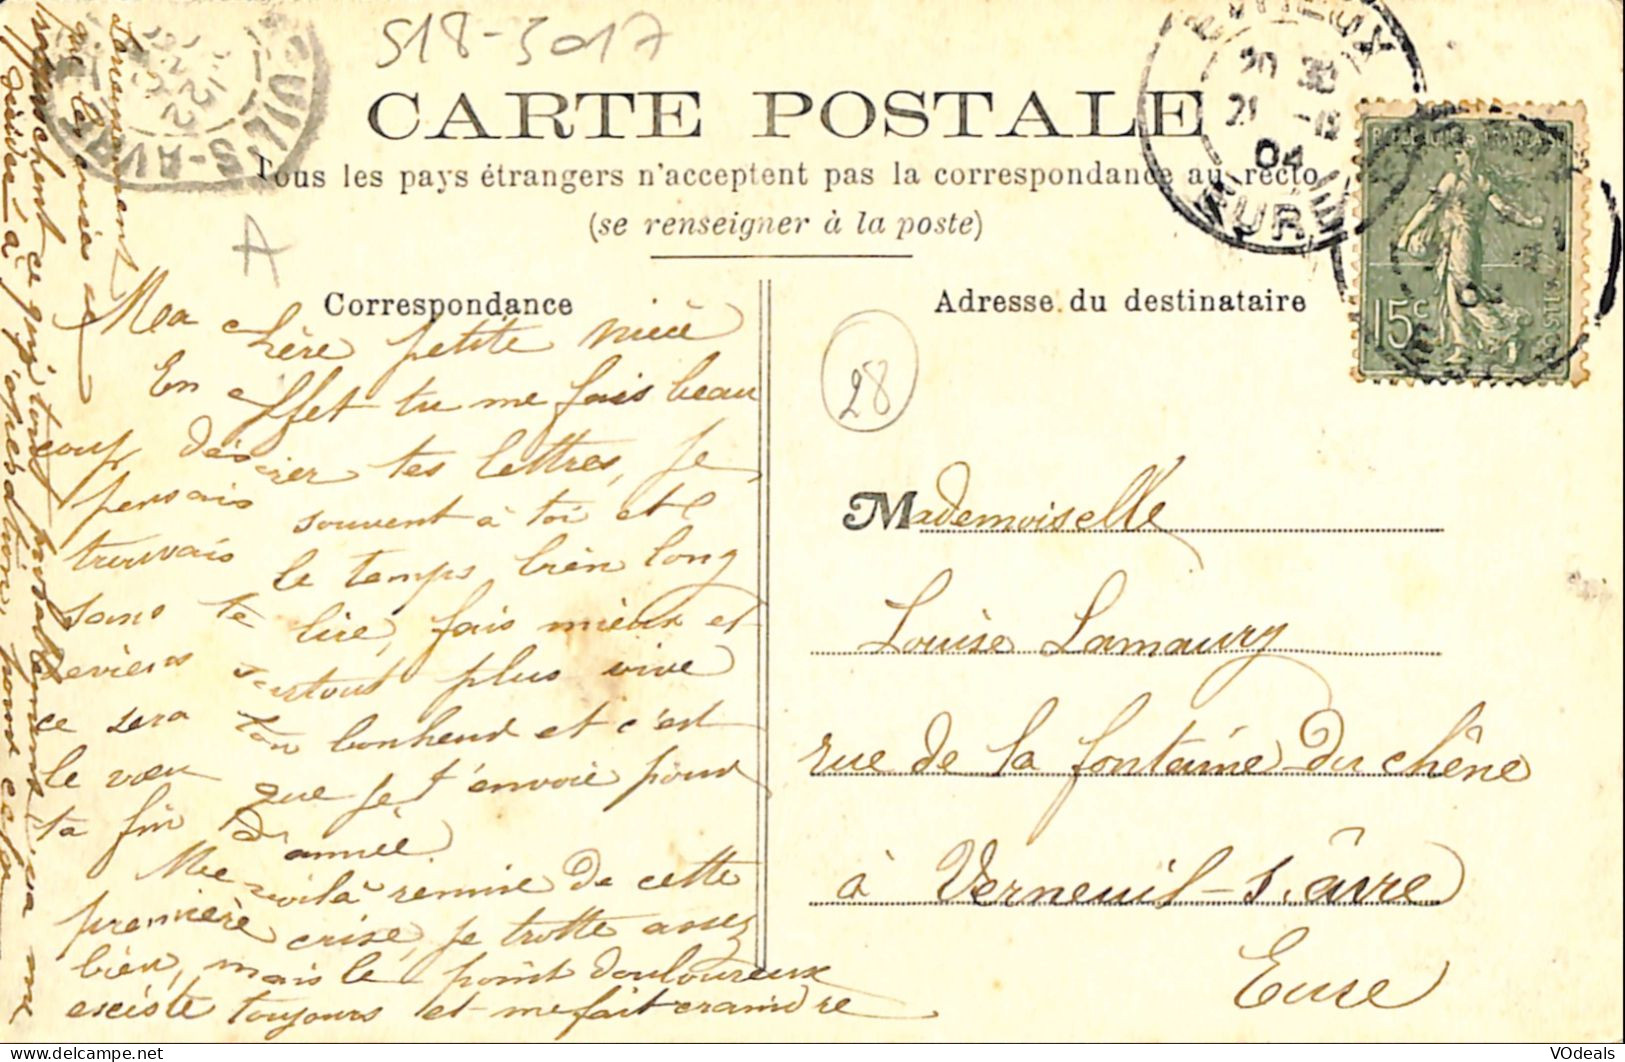 518-3017
CARTE POSTALE
Tous les pays étrangers n'acceptent pas la correspondance au recto
(se renseigner à la poste)
A
Correspondance
Ma chère petite nièce
En effet tu me fais beau
coup désirer tes lettres, je
pensais souvent à toi et
trouvais le temps bien long
sans te lire, fais mieux et
deviens surtout plus vive
ce sera ton bonheur et c'est
le vœu que je t'envoie pour
ta fin d'année.
Me voilà remise de cette
première crise, je trotte assez
bien, mais le point douloureux
existe toujours et me fait craindre
l'opération, pour cela
désirer à
rapprochent ce qui tout probablement va me
que les années se
Lamaury
Adresse du destinataire
28
Mademoiselle
Louise Lamaury
rue de la fontaine du chêne
à Verneuil-s.âvre
Eure
EVREUX
20 30
21
04
EURE
VERNEUIL-S-AVRE
REPUBLIQUE FRANCAISE
15c
POSTES
VOdeals